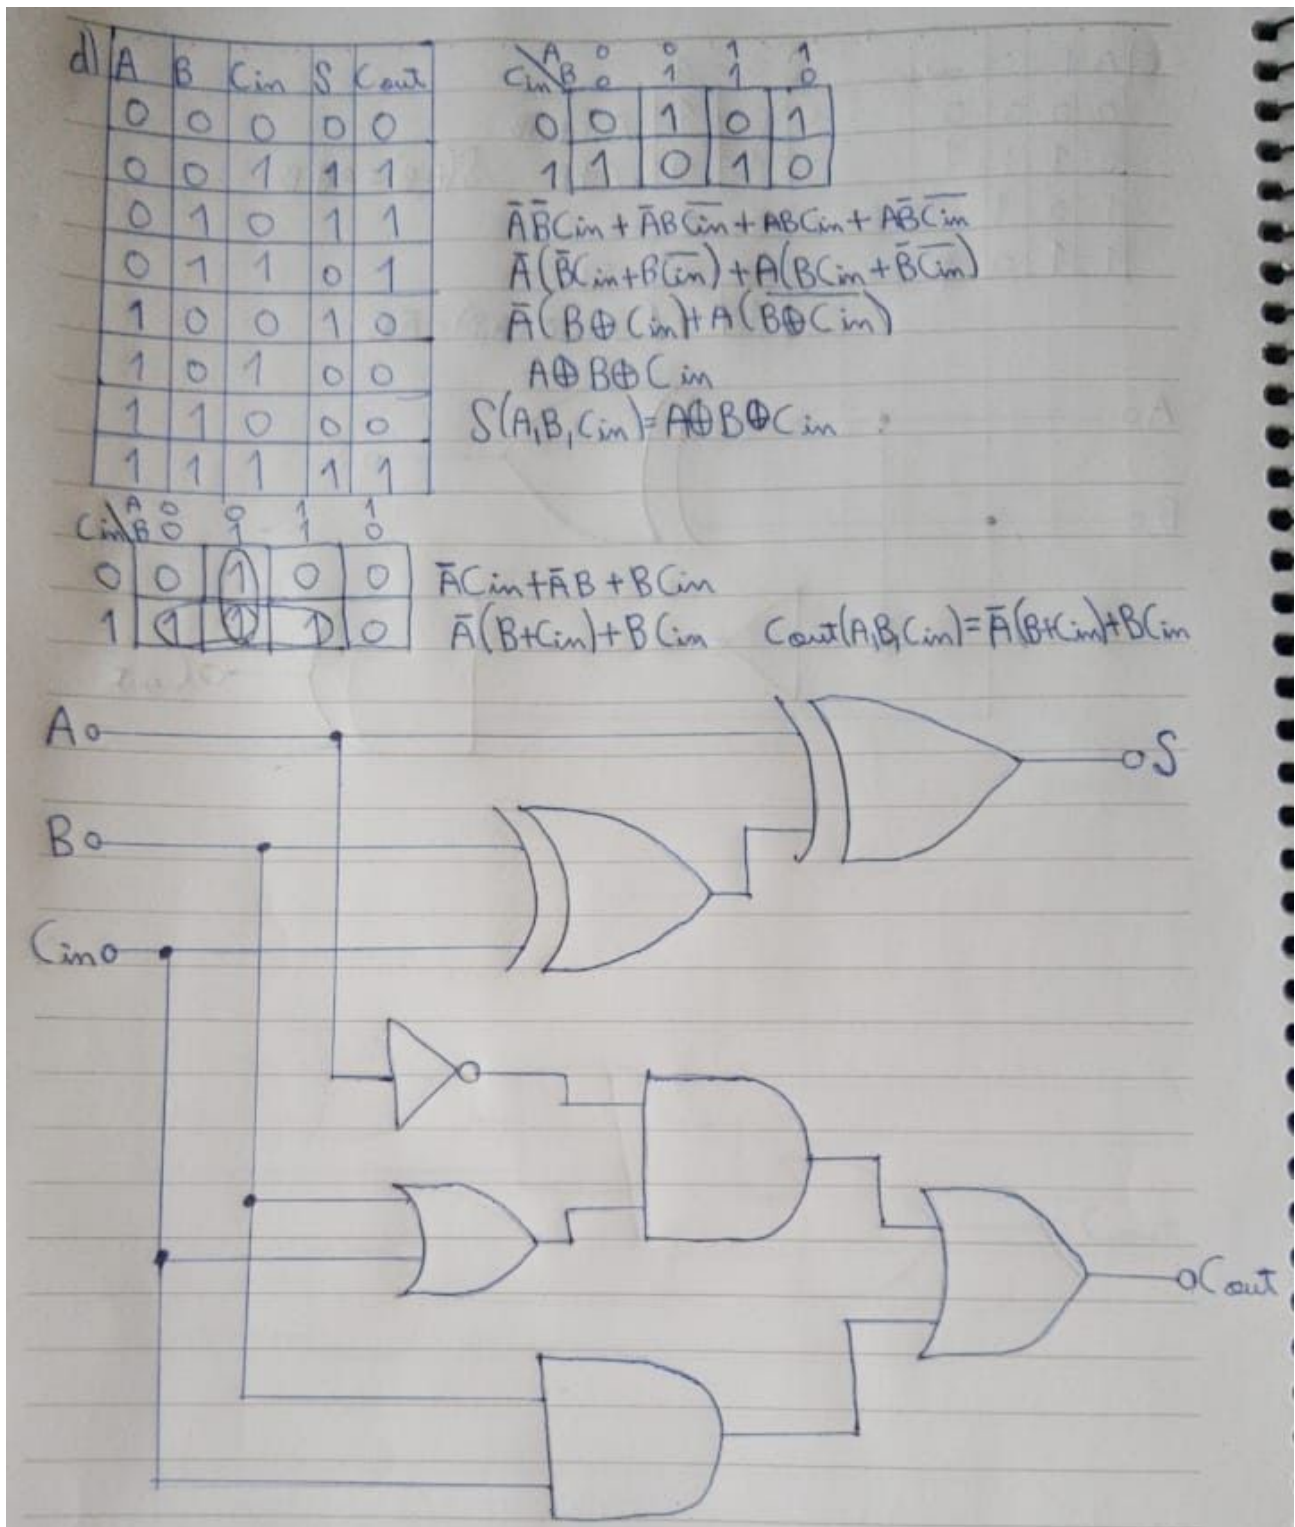 d) A B Cin S Cout
0 0 0 0 0
0 0 1 1 1
0 1 0 1 1
0 1 1 0 1
1 0 0 1 0
1 0 1 0 0
1 1 0 0 0
1 1 1 1 1
A 0 0 1 1
Cin\B 0 1 1 0
0 0 1 0 1
1 1 0 1 0
A̅B̅Cin + A̅BC̅i̅n̅ + ABCin + AB̅C̅i̅n̅
A̅(B̅Cin+BC̅i̅n̅) + A(BCin + B̅C̅i̅n̅)
A̅(B⊕Cin)+A(B̅⊕̅C̅i̅n̅)
A⊕B⊕Cin
S(A,B,Cin)=A⊕B⊕Cin
A 0 0 1 1
Cin\B 0 1 1 0
0 0 1 0 0
1 1 1 1 0
A̅Cin+A̅B+BCin
A̅(B+Cin)+BCin
Cout(A,B,Cin)=A̅(B+Cin)+BCin
A
S
B
Cin
Cout